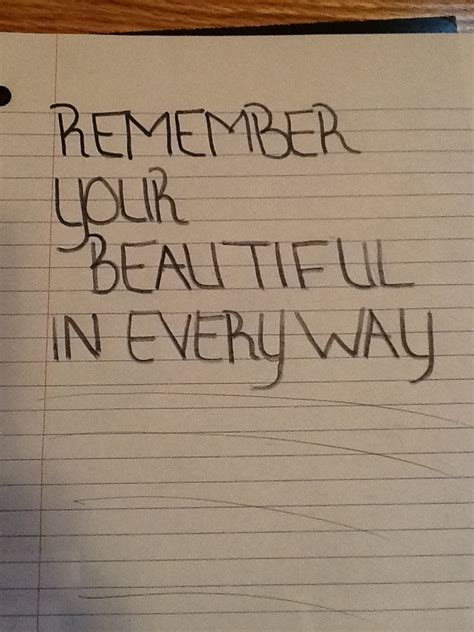 REMEMBER
YOUR
BEAUTIFUL
IN EVERY WAY